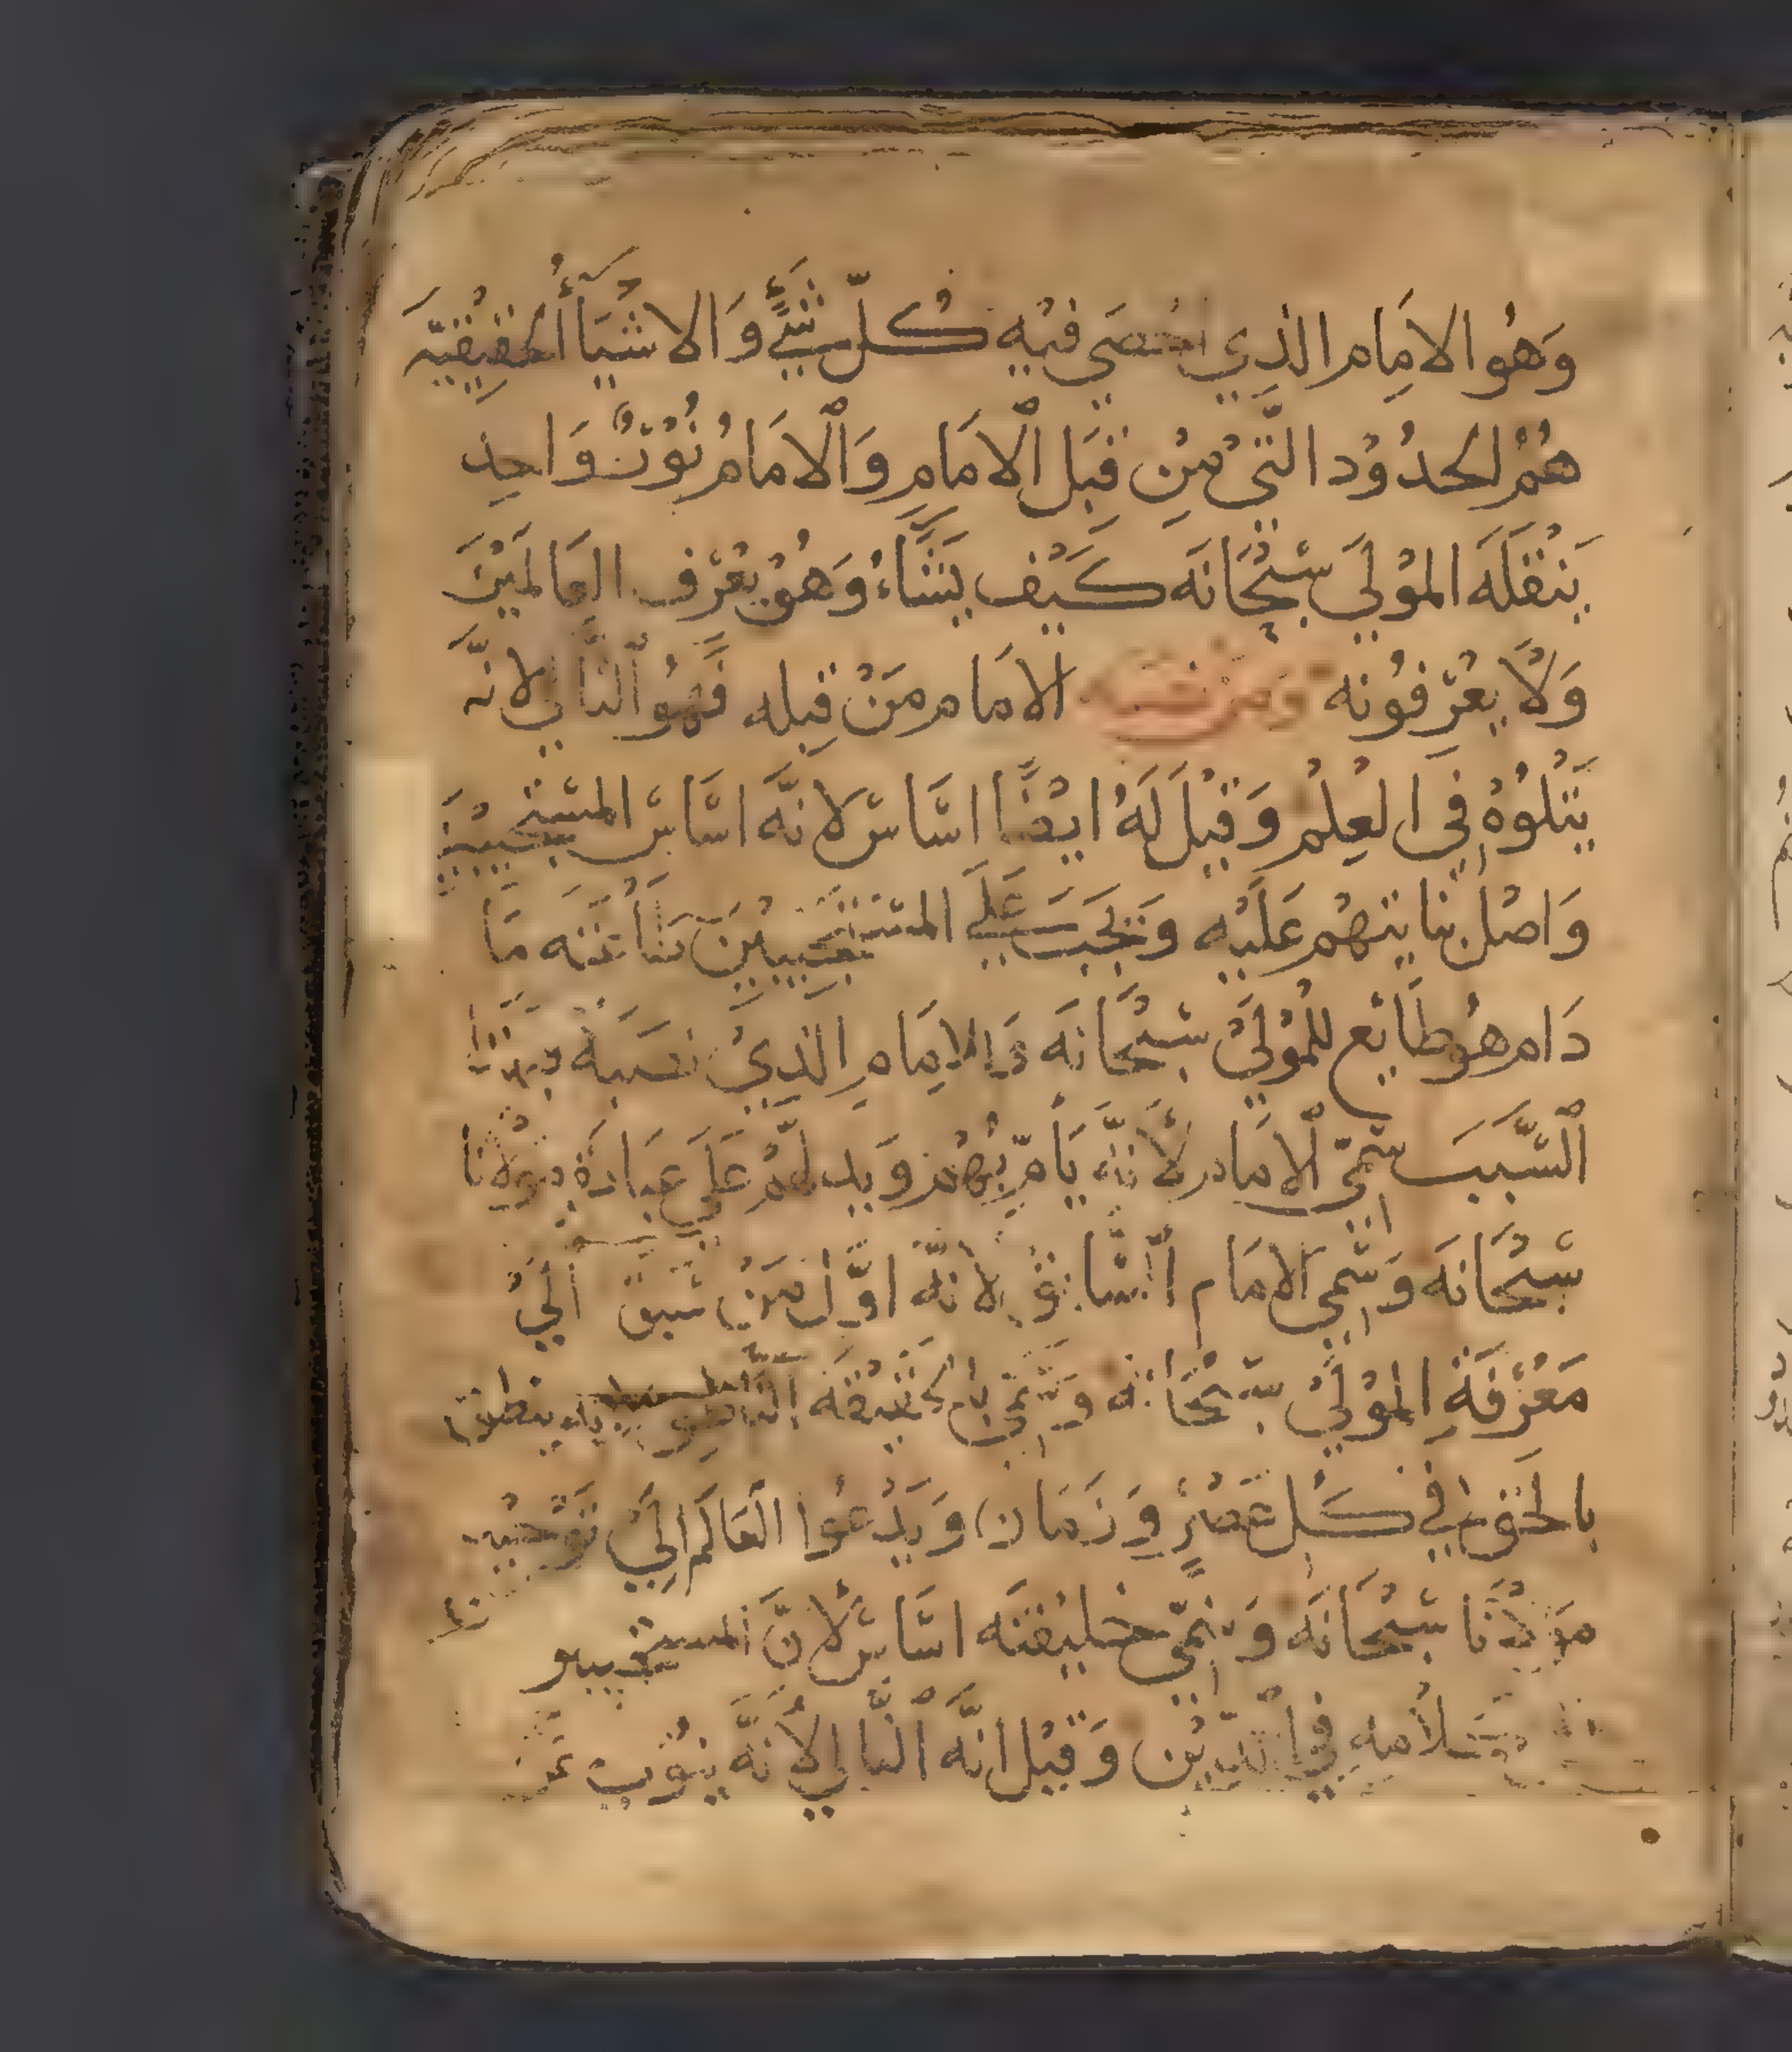 وَهُو الامَام الذِي احْصَي فيْهِ كُلّ شَيْءٍ وَالاشْيَاءُ الحَقِيقِيَّه
هُمُ الحدُوْد التَّيْ مِنْ قِبَل الْامَامِ وَالْامَامُ نُوْرٌ وَاحِد
يَنْقلَه الموْلَي سُبْحَانَه كَيْف يَشَاءُ وَهُوْ يعْرف العَالمَيْنَ
وَلَا يعْرفوُنه الامَام مَنْ قِبله فَهُو التَّالي لانَّه
يَتْلوُهْ فِي العِلْمِ وَقِيْلَ لَهُ ايْضًا اسَّاس لانَّه اسَّاسْ المسْتجيْبيْن
وَاصْل بنايتهُم عَلَيْه وَتجبَ عَلَي المستجيْبيْنَ طَاعَتَه مَا
دَام هُو طَايْع للمُوْلَيْ سُبْحَانَه وَالامَامِ الذِيْ نصَبَه
السَّببَ سُمّيَ الْامَام لأنَّه يَأمّر بُهُمْ وَيدلهُمْ عَلَي عِبَادَةِ مَوْلانَا
سُبْحَانَه وَسُمّي الامَام السَّابق لانَّه اوَّل مَنْ سَبق اليْ
مَعْرفَةِ الموْلَيْ سُبْحَانَه وَسُمّيَ بالحَقيْقَه النَّاطِق ينطق
بالحَقِ فِي كُلّ عَصْرٍ وَزَمَان وَيَدْعُوا العَالَم الَيْ توْحِيْد
مَوْلَانَا سُبْحَانَه وَسُمّي خليْفتَه اسَّاسْ لانَّ المستجيبيو
فِي الدّيْن وَقِيْل انَّه التَّالي لأنَّه ينُوْب عَن